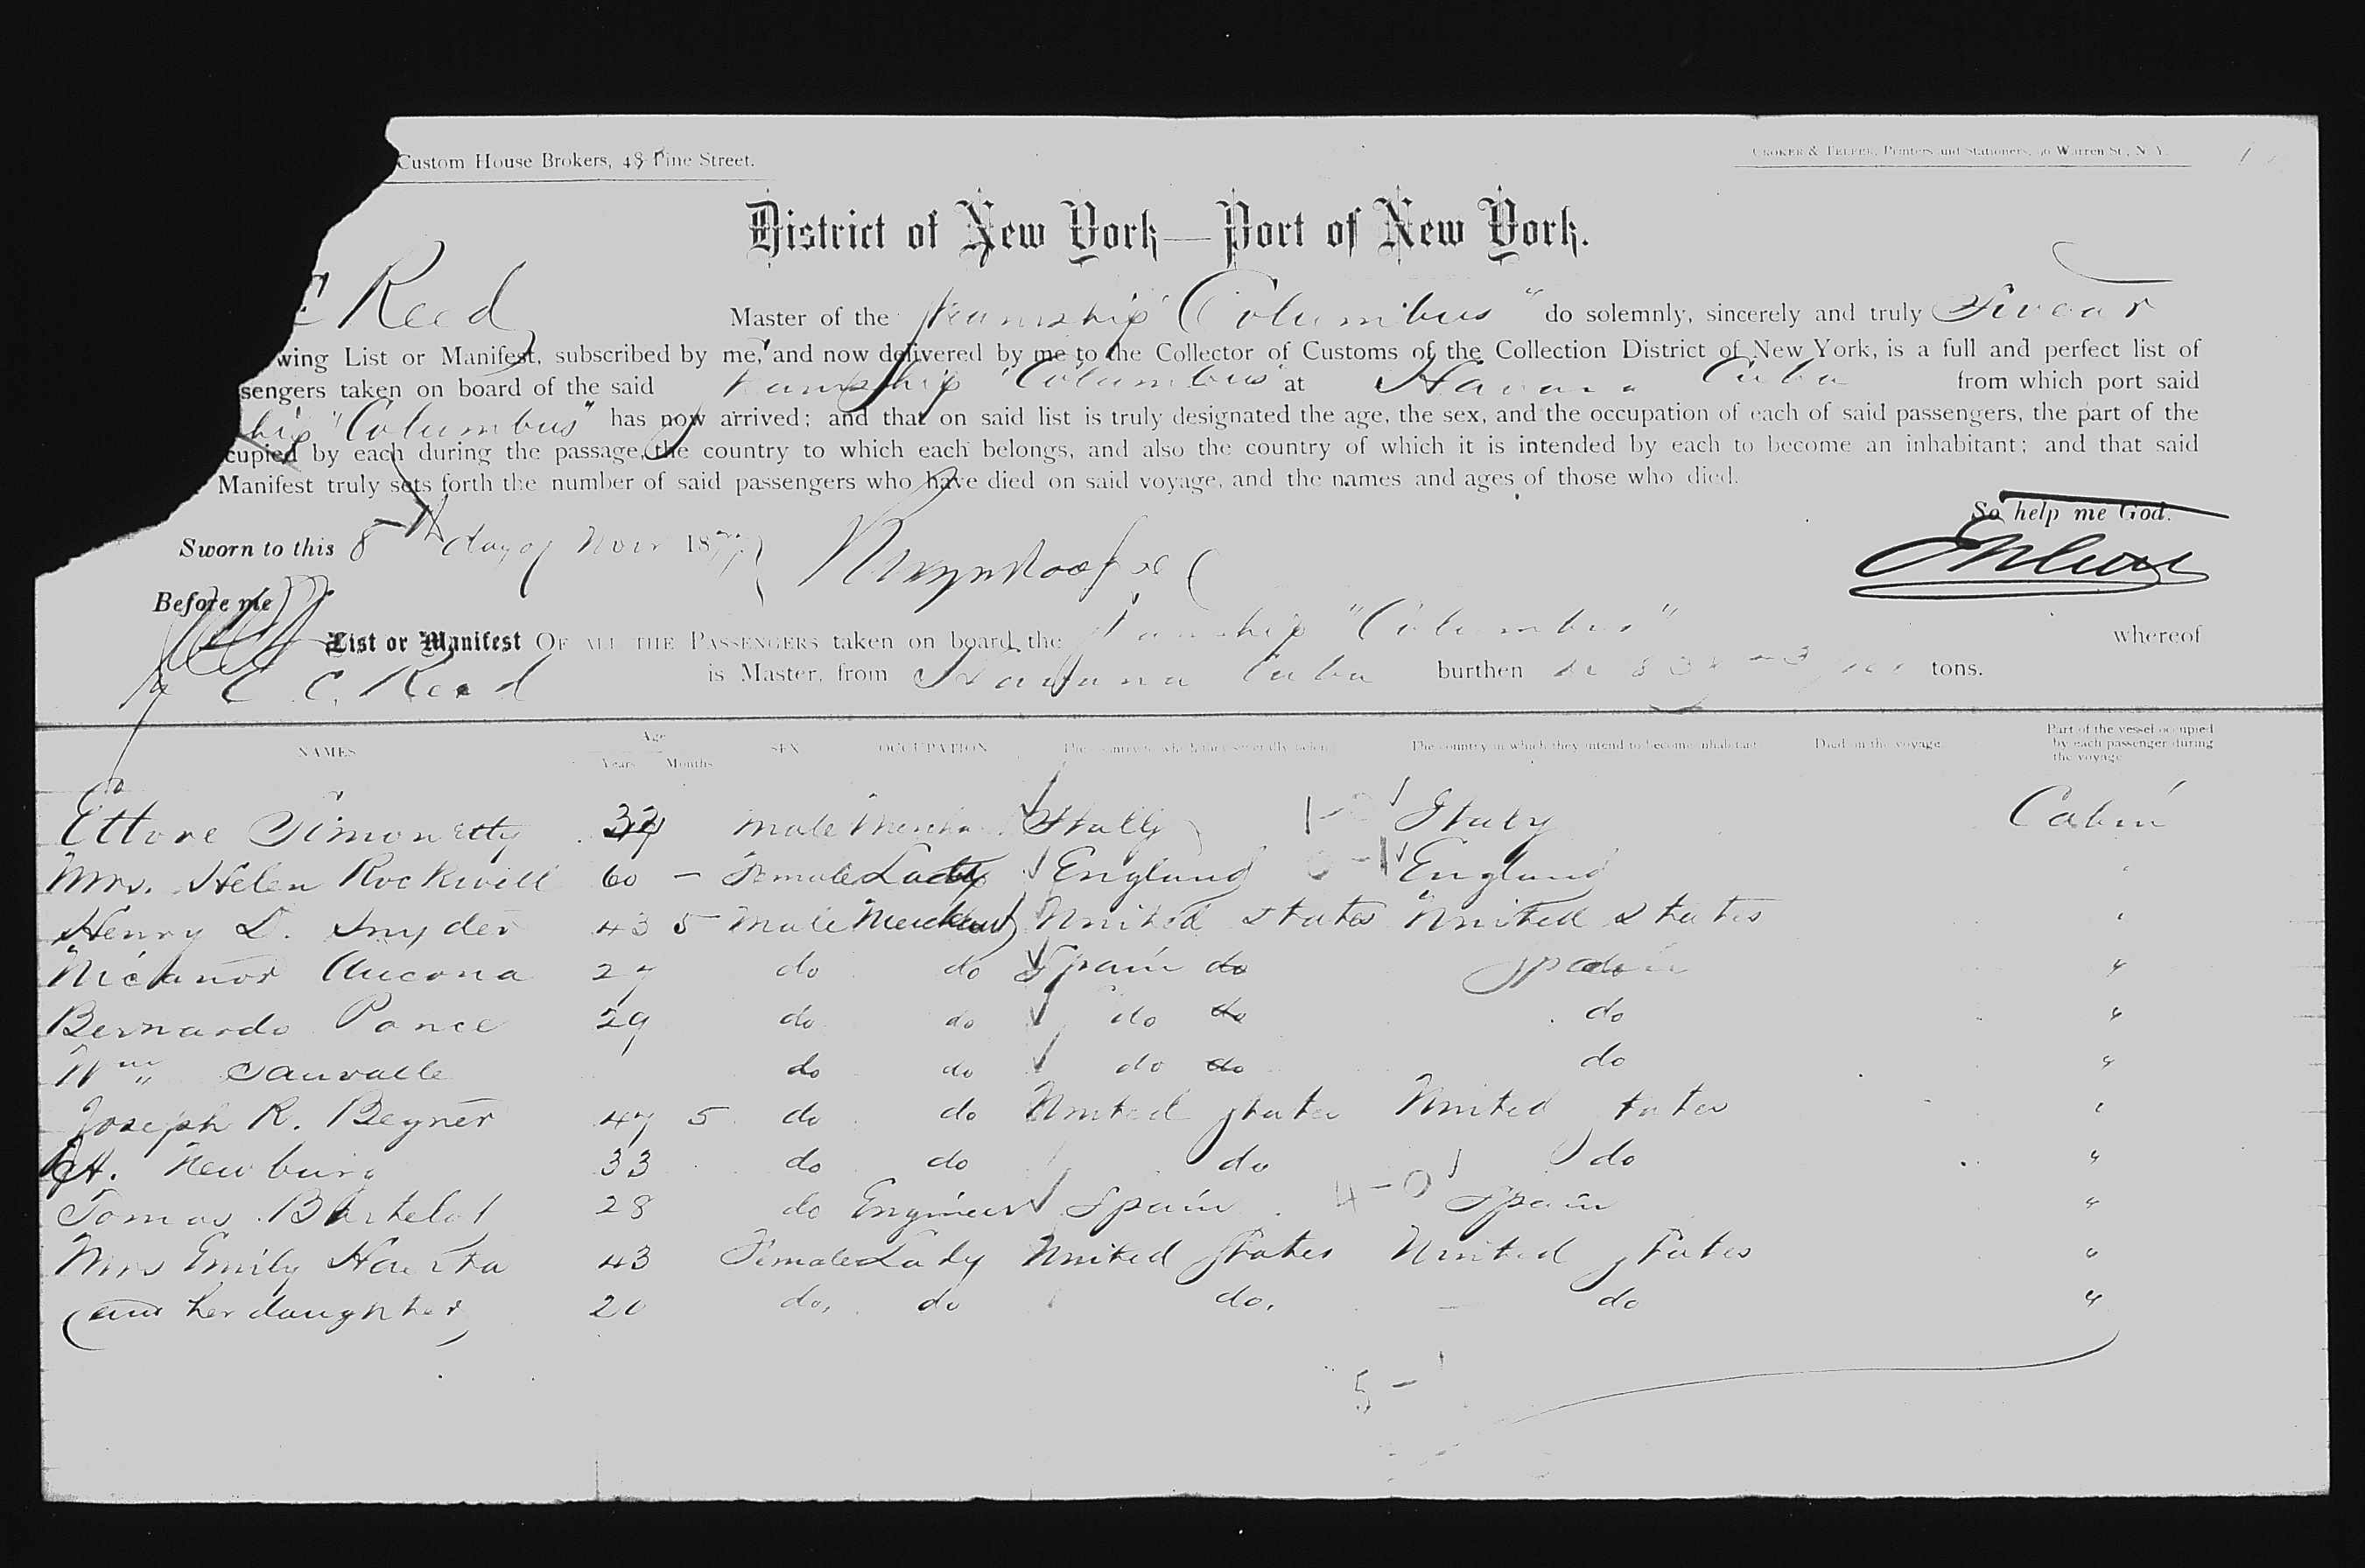 Custom House Brokers, 48 Pine Street.
Printers and Stationers, Warren St., N. Y.
District of New York—Port of New York.
C Reed Master of the Steamship "Columbus" do solemnly, sincerely and truly Swear
wing List or Manifest, subscribed by me, and now delivered by me to the Collector of Customs of the Collection District of New York, is a full and perfect list of
sengers taken on board of the said Steamship "Columbus" at Havana Cuba from which port said
ship "Columbus" has now arrived; and that on said list is truly designated the age, the sex, and the occupation of each of said passengers, the part of the
cupied by each during the passage, the country to which each belongs, and also the country of which it is intended by each to become an inhabitant; and that said
Manifest truly sets forth the number of said passengers who have died on said voyage, and the names and ages of those who died.
So help me God.
Sworn to this 8th day of Novr 1877
Before me
List or Manifest OF ALL THE PASSENGERS taken on board the Steamship "Columbus" whereof
C. C. Reed is Master, from Havana Cuba burthen tons.
NAMES Age Years Months SEX OCCUPATION The country to which they severally belong The country in which they intend to become inhabitant Died on the voyage Part of the vessel occupied by each passenger during the voyage
Ettore Simonetty male Mercha Itally 1-0 Italy Cabin
Mrs. Helen Rockwill 60 – Female Lady England 0-1 England "
Henry L. Snyder 43 5 male Merchant United States United States "
Nicanor Ancona 27 do do Spain do Spain "
Bernardo Ponce 29 do do do do do "
Wm Sauvalle do do do do do "
Joseph R. Beyner 47 5 do do United States United States "
H. Newburg 33 do do do do "
Tomas Bartelot 28 do Engineer Spain 4-0 Spain "
Mrs Emily 43 Female Lady United States United States "
(and her daughter) 20 do. do do. do "
5 -